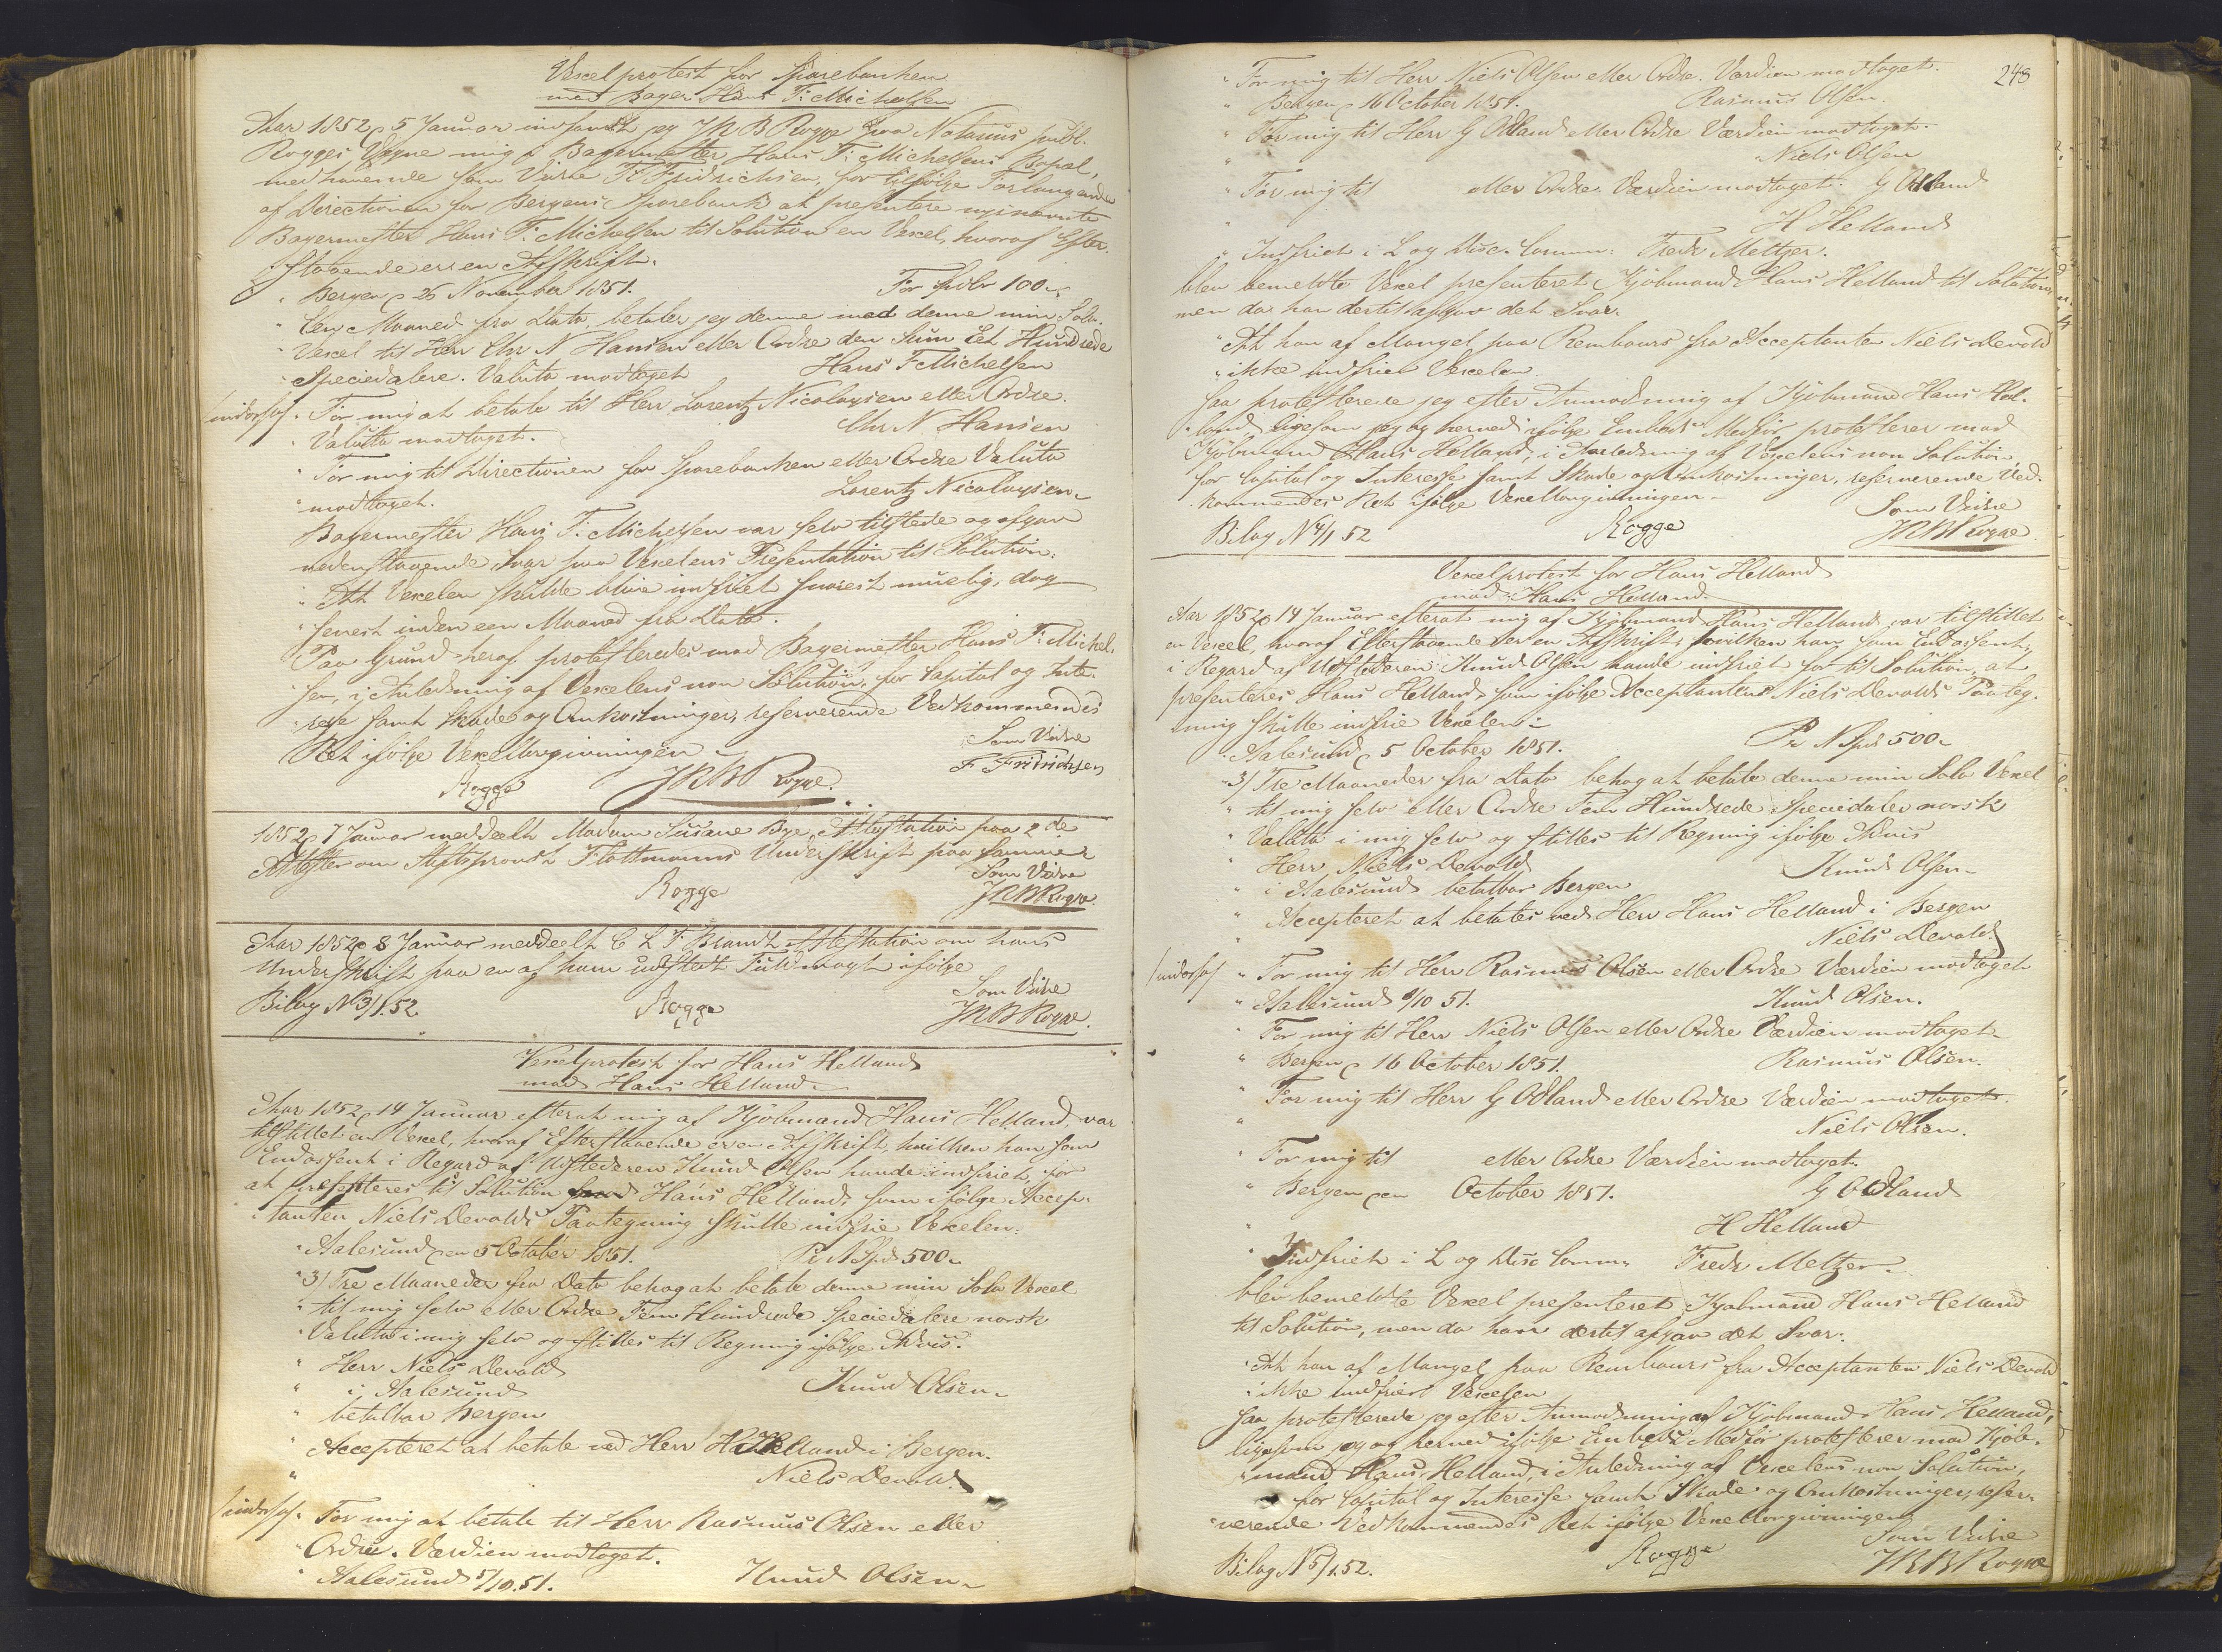 Vexelprotest for Sparebanken
mod Bager Hans F: Michelsen
Aar 1852 d 5 Januar indfandt jeg JRB Rogge paa Notarius publ.
Rogges Vegne mig i Bagermester Hans F: Michelsens Bopæl,
medhavende som Vidne F. Fridrichsen, for ifølge Forlangende
af Directionen for Bergens Sparebank at presentere nysnævnte
Bagermester Hans F: Michelsen til Solution en Vexel, hvoraf Efter-
staaende er en Afskrift.
" Bergen d 25 November 1851. For Spdlr 100.
" Een Maaned fra Dato, betaler jeg denne med denne min Sola
" Vexel til Herr Chr N Hansen eller Ordre den Sum Et Hundrede
" Speciedalere. Valuta modtaget Hans F Michelsen
" For mig at betale til Herr Lorentz Nicolaysen eller Ordre.
" Valuta modtaget. Chr N Hansen
" For mig til Directionen for Sparebanken eller Ordre Valuta
" modtaget. Lorentz Nicolaysen
Bagermester Hans F. Michelsen var selv tilstede og afgav
nedenstaaende Svar paa Vexelens Presentation til Solution:
" At Vexelen skulde blive indfriet snarest muelig, dog
" senest inden een Maaned fra Dato.
Paa Grund heraf protesteredes mod Bagermester Hans F: Michel-
sen, i Anledning af Vexelens non Solution, for Capital og Inte-
resse samt Skade og Omkostninger, reserverende Vedkommendes
Ret ifølge Vexellovgivningen
Som Vidne
F Fridrichsen
Rogge JRB Rogge.
1852 d 7 Januar meddeelt Madam Susane Bye, Attestation paa 2de
Attester om Stiftsprovst Flottmanns Underskrift paa samme
Som Vidne
Rogge JRB Rogge.
Aar 1852 d 8 Januar meddeelt C L F Brandt Attestation om hans
Underskrift paa en af ham udstedt Fuldmagt ifølge
Bilag N 3/1.52. Rogge Som Vidne
JRB Rogge.
Vexelprotest for Hans Helland
mod Hans Helland
Aar 1852 d 14 Januar efterat mig af Kjøbmand Hans Helland, var
tilstillet en Vexel, hvoraf Efterstaaende er en Afskrift, hvilken han som
Endossent i Regard af Udstederen Knud Olsen havde indfriet, for
at presenteres til Solution Hans Helland, som ifølge Accep-
tanten Niels Devolds Paategning skulle indfrie Vexelen:
" Aalesund den 5 October 1851. Pr N Spd 500.
" 3/ Tre Maaneder fra Dato behag at betale denne min Sola Vexel
" til mig selv eller Ordre Fem Hundrede Speciedalere norsk
" Valuta i mig selv og stilles til Regning ifølge Advis.
" Herr Niels Devold
" i Aalesund Knud Olsen
" betalbar Bergen
" Accepteret at betale ved Herr H Helland i Bergen.
" Niels Devold
" For mig at betale til Herr Rasmus Olsen eller
" Ordre. Værdien modtaget.
" Aalesund 5/10.51. Knud Olsen
248
" For mig til Herr Niels Olsen eller Ordre. Værdien modtaget.
" Bergen d 16 October 1851. Rasmus Olsen.
" For mig til Herr G Odland eller Ordre Værdien modtaget.
" Niels Olsen
" For mig til eller Ordre. Værdien modtaget. G Odland
" H Helland
" Indfriet i L og Disc. Comm: Fredr Meltzer.
blev bemeldte Vexel presenteret Kjøbmand Hans Helland til Solution,
men da han dertil afgav det Svar:
" At han af Mangel paa Rembours fra Acceptanten Niels Devold
" ikke indfrier Vexelen
saa protesterede jeg efter Anmodning af Kjøbmand Hans Hel-
land, ligesom jeg og herved ifølge Embeds Medfør protesterer mod
Kjøbmand Hans Helland, i Anledning af Vexelens non Solution
for Capital og Interesse samt Skade og Omkostninger, reserverende Ved-
kommendes Ret ifølge Vexellovgivningen
Som Vidne
Bilag N 4/1 52 Rogge JRB Rogge.
Vexelprotest for Hans Helland
mod Hans Helland
Aar 1852 d 14 Januar efterat mig af Kjøbmand Hans Helland var tilstillet
en Vexel, hvoraf Efterstaaende er en Afskrift, hvilken han som Endossent,
i Regard af Udstederen Knud Olsen havde indfriet for til Solution, at
presenteres Hans Helland, som ifølge Acceptanten Niels Devolds Paateg-
ning skulle indfrie Vexelen:
" Aalesund d 5 October 1851. Pr N Spd 500.
" 3/ Tre Maaneder fra Dato behag at betale denne min Sola Vexel
" til mig selv eller Ordre Fem Hundrede Speciedaler norsk
" Valuta i mig selv og stilles til Regning ifølge Advis
" Herr Niels Devold
" i Aalesund betalbar Bergen Knud Olsen
" Accepteret at betales ved Herr Hans Helland i Bergen
Niels Devold
" For mig til Herr Rasmus Olsen eller Ordre Værdien modtaget
" Aalesund 6/10 51. Knud Olsen.
" For mig til Herr Niels Olsen eller Ordre Værdien modtaget
" Bergen d 16 October 1851. Rasmus Olsen.
" For mig til Herr G Odland eller Ordre Værdien modtaget.
" Niels Olsen.
" For mig til eller Ordre Værdien modtaget.
" Bergen den October 1851. G Odland
" H Helland
" Indfriet i L og Disc Comm: Fredr Meltzer
blev bemeldte Vexel presenteret Kjøbmand Hans Helland
til Solution, men da han dertil afgav det Svar:
" At han af Mangel paa Rembours fra Acceptanten Niels Devold
" ikke indfrier Vexelen
saa protesterede jeg efter Anmodning af Kjøbmand Hans Helland,
ligesom jeg og herved ifølge Embeds Medfør protesterer mod Kjøb-
mand Hans Helland, i Anledning af Vexelens non Solution,
for Capital og Interesse samt Skade og Omkostninger, reser-
verende Vedkommendes Ret ifølge Vexellovgivningen
Som Vidne
Bilag N 5/1.52. Rogge JRB Rogge